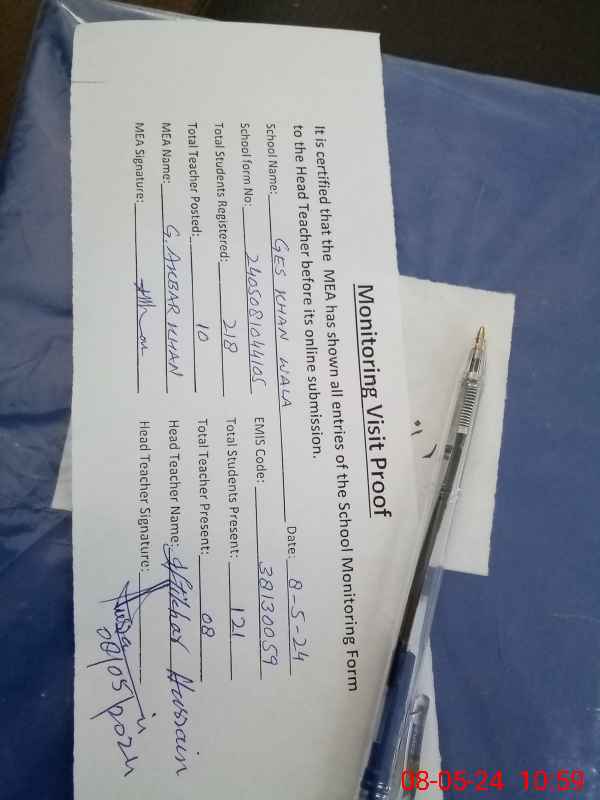 Monitoring Visit Proof
It is certified that the MEA has shown all entries of the School Monitoring Form
to the Head Teacher before its online submission.
School Name: GES KHAN WALA Date: 8-5-24
School form No: 240508104410S EMIS Code: 38130059
Total Students Registered: 218 Total Students Present: 121
Total Teacher Posted: 10 Total Teacher Present: 08
MEA Name: G. AKBAR KHAN Head Teacher Name: Iftikhar Hussain
MEA Signature: Head Teacher Signature:
08/05/2024
08-05-24 10:59